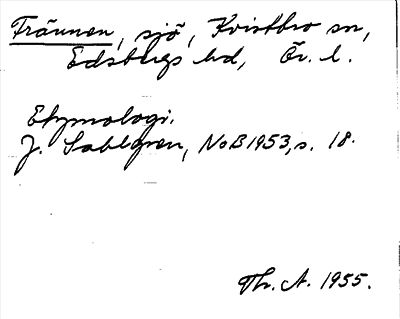 Frännen, sjö, Kvistbro sn,
Edsbergs hd, Ör. l.
Etymologi.
J. Sahlgren, NoB 1953, s. 18.
Th. A. 1955.